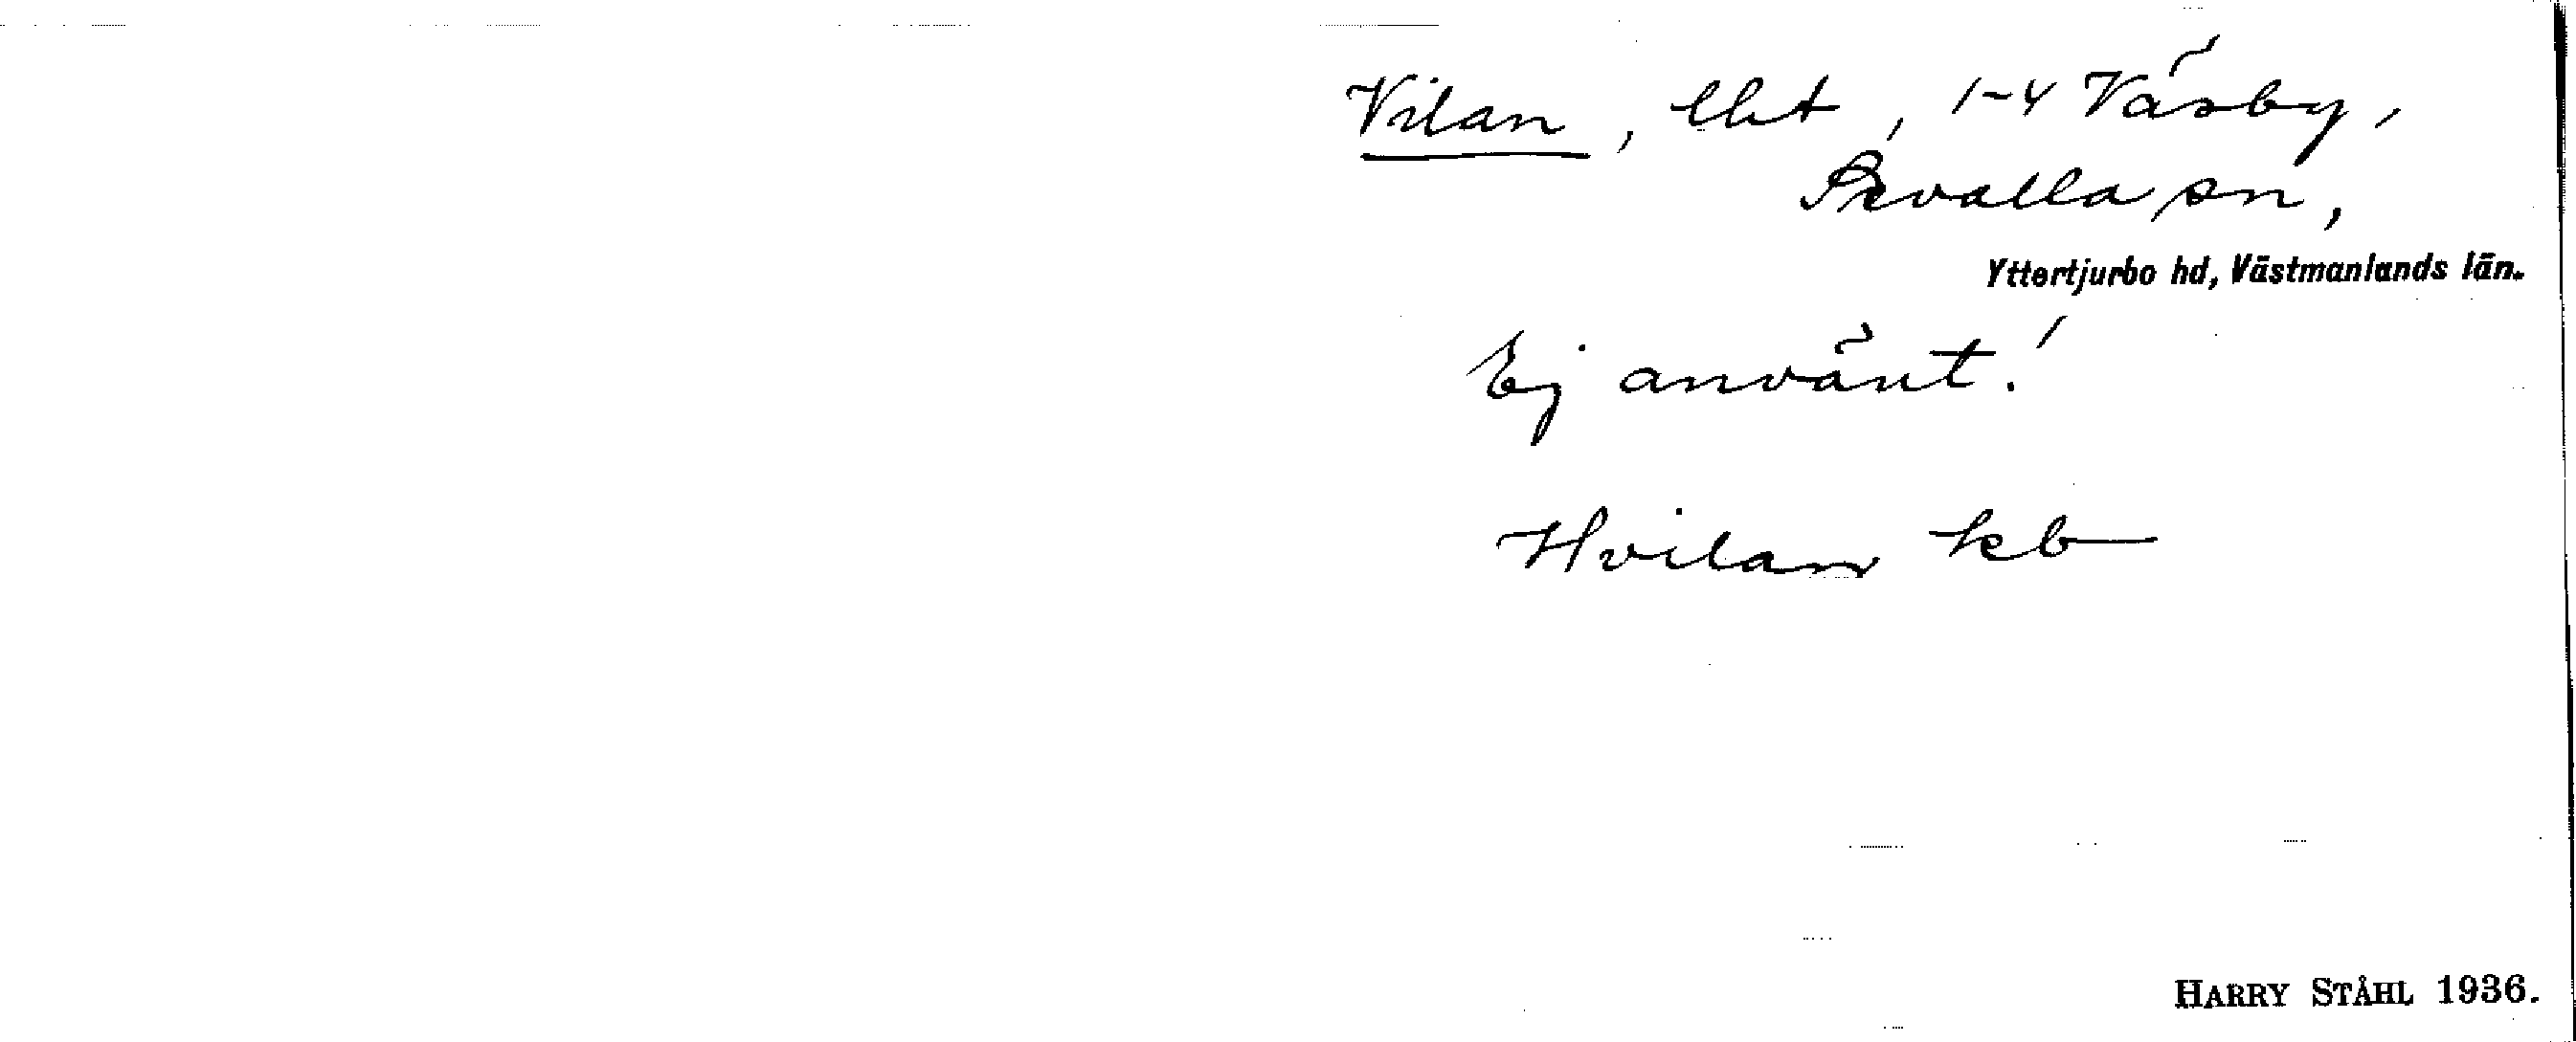 Vilan, lht, 1-4 Väsby,
Sevalla sn,
Yttertjurbo hd, Västmanlands län.
Ej använt!
Hvilan kb
HARRY STÅHL 1936.